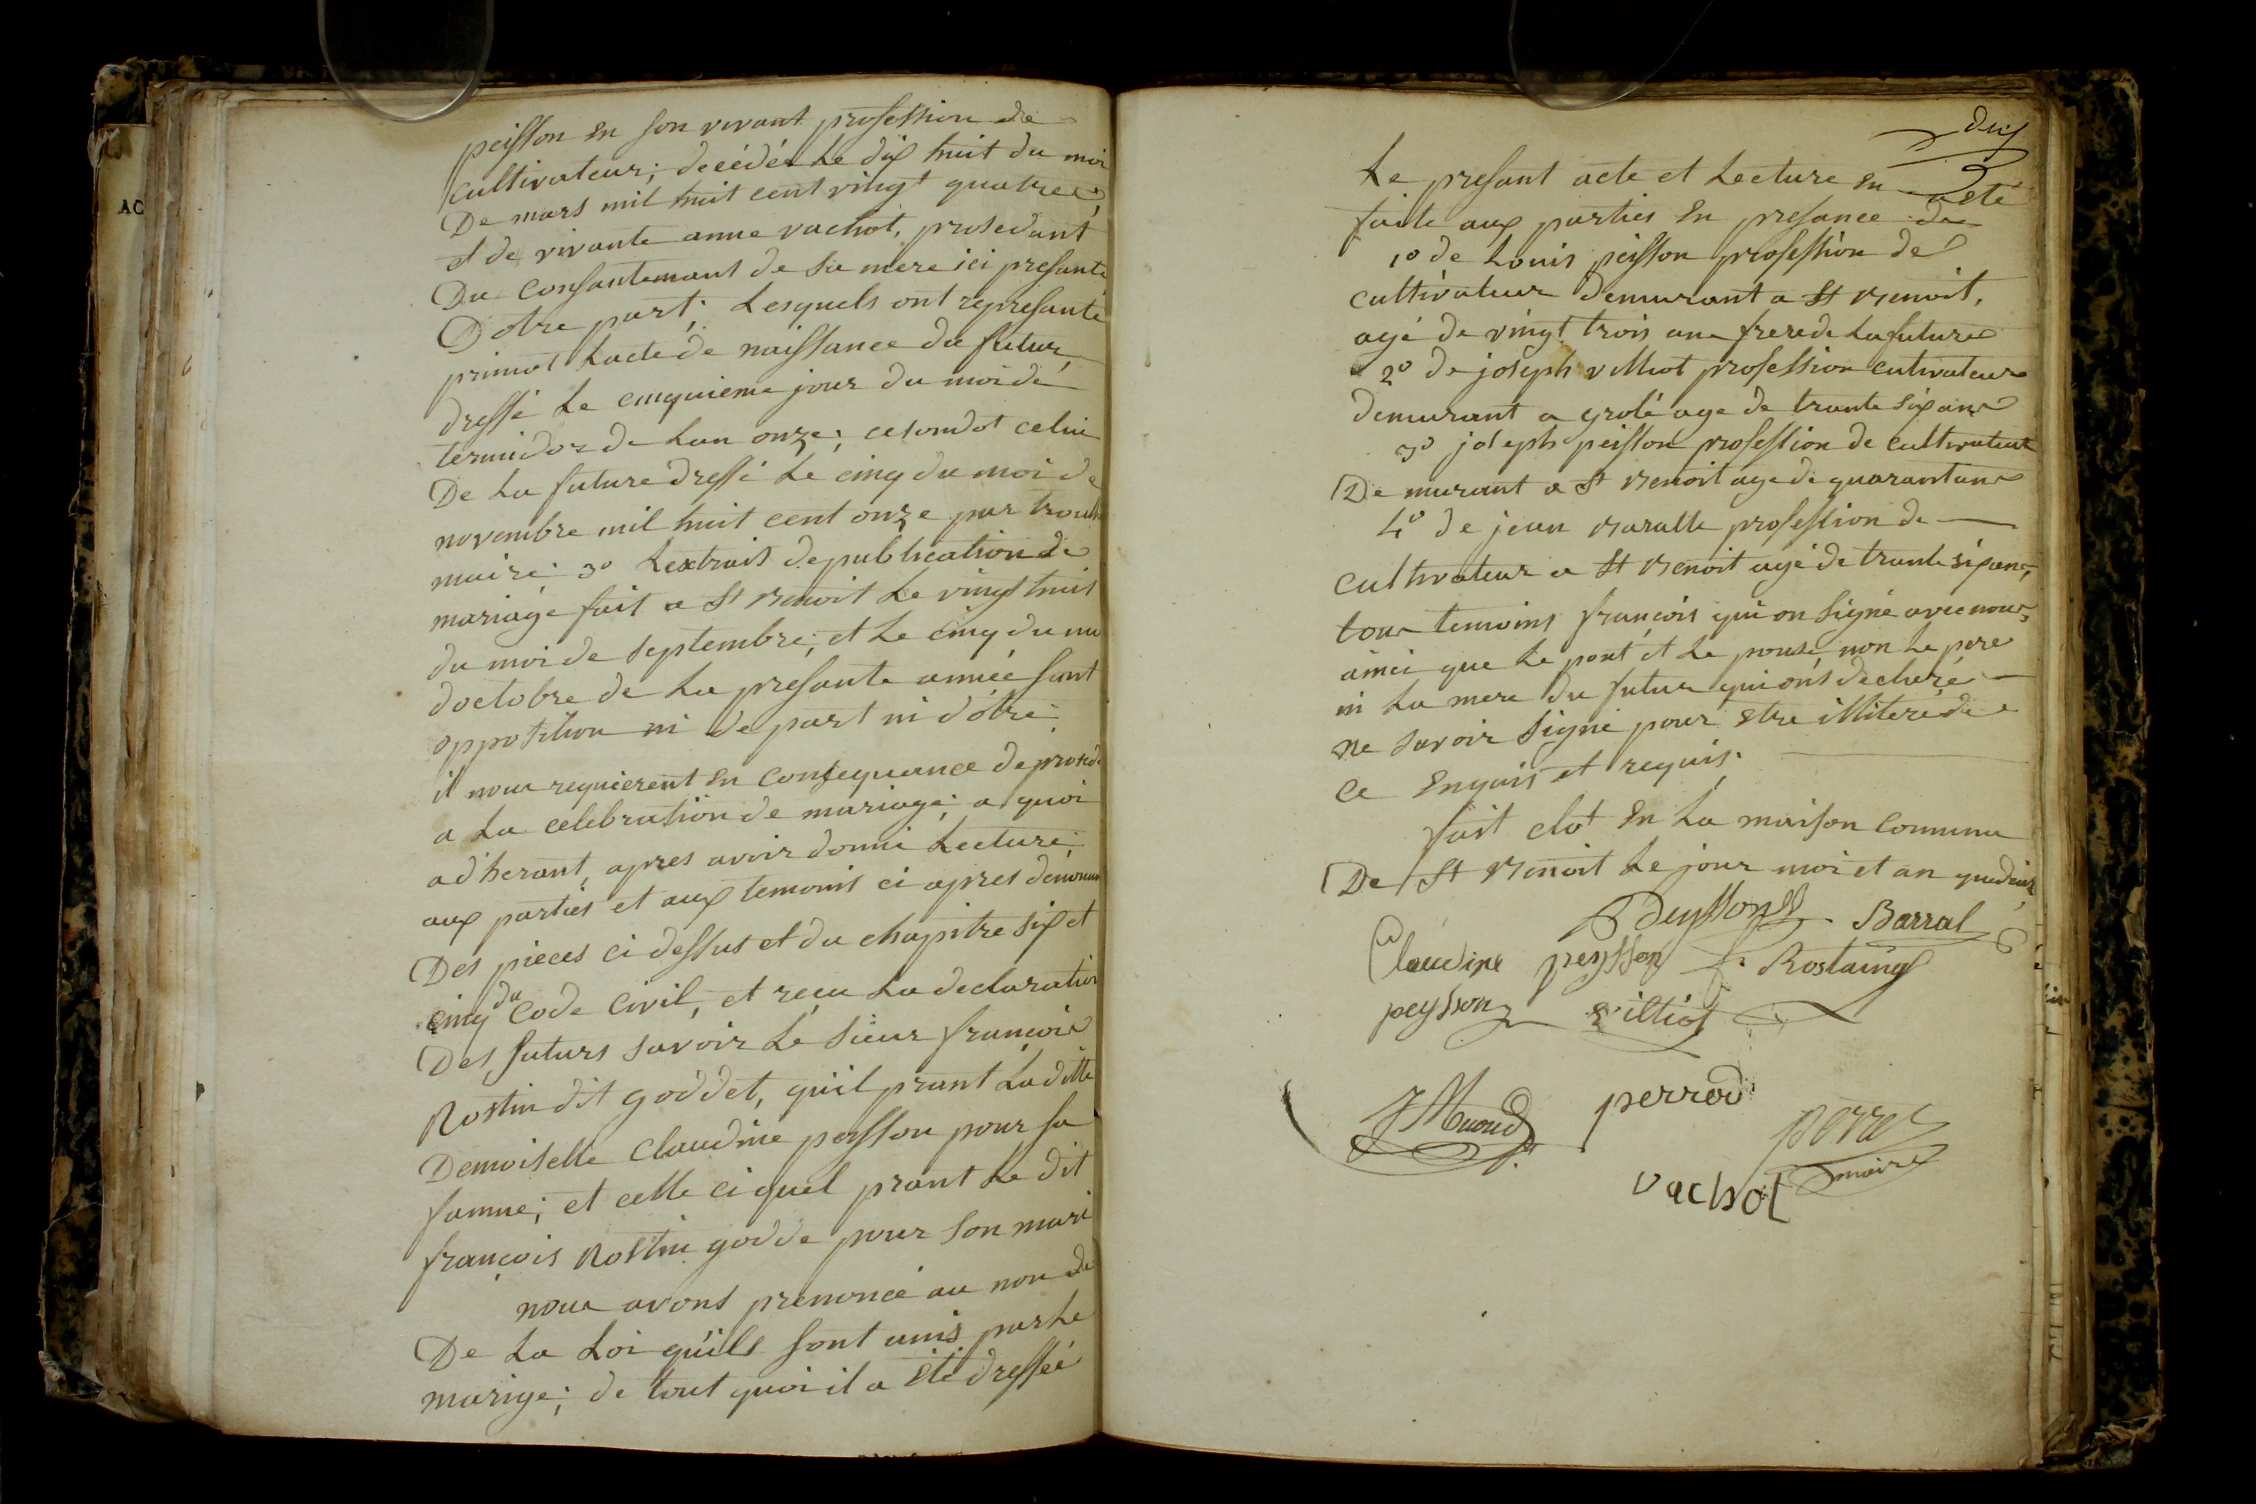 peisson En son vivant profession de
cultivateur; decédée Le dix huit du moi
De mars mil huit cent vingt quatree,
et de vivante anne vachot, prosedant
Du consantemant de sa mere ici presante
Dotre part; Lesquels ont represanté
primot Lacte de naissance du futur,
dressé Le cinquieme jour du moi de
termidor de Lan onze; cesondot celui
De La future dressé Le cinq du moi de
novembre mil huit cent onze par
maire; 3° Lextrait de publication de
mariage fait a St Benoit Le vingt huit
du moi de septembre; et Le cinq du
doctobre de La presante année sant
opposition ni de part ni dótre
il nous requierent En consequance de
a La celebration de mariage; a quoi
adherant, apres avoir donné Lecture;
aux parties et aux temonis ci apres
Des pieces ci dessus et du chapitre six et
cinq du code civil, et recu La declaration
Des futurs savoir Le sieur francois
Rostin dit goddet, quil prant La ditte
Demoiselle Claudine peisson pour sa
famme; et celle ci quel prant Le dit
francois Rostin godde pour son mari
nous avons prenoncé au non de
De La Loi quils sont unis par Le
marige; de tout quoi il a Eté dressée
dix
Le presant acte et Lecture En a eté
faite aux parties En presance de
1° de Louis peisson profession de
cultivateur demurant a St Benoit,
agé de vingt trois ans frere de La future
2° De joseph villiot profession cutivateur
demurant a grolé age de trante six ans
3° joseph peisson profession de cultivateur
De murant a St Benoit age de quarantans
4° de jean Baralle profession de
cultivateur a St Benoit agé de trante sixans,
tous temoins francois qui on signé avec nous,
ainci que Le pout et Le pouse non Le pere
ni La mere du futur qui ont decleré
ne savoir signé pour Etre illiteré de
ce Enquis et requis.
fait clot En La maison commune
De St Benoit Le jour moi et an quedeus
Peysson Barral
Claudine peysson f. Rostaing
peysson villiot
perrod
perret
maire
vachot